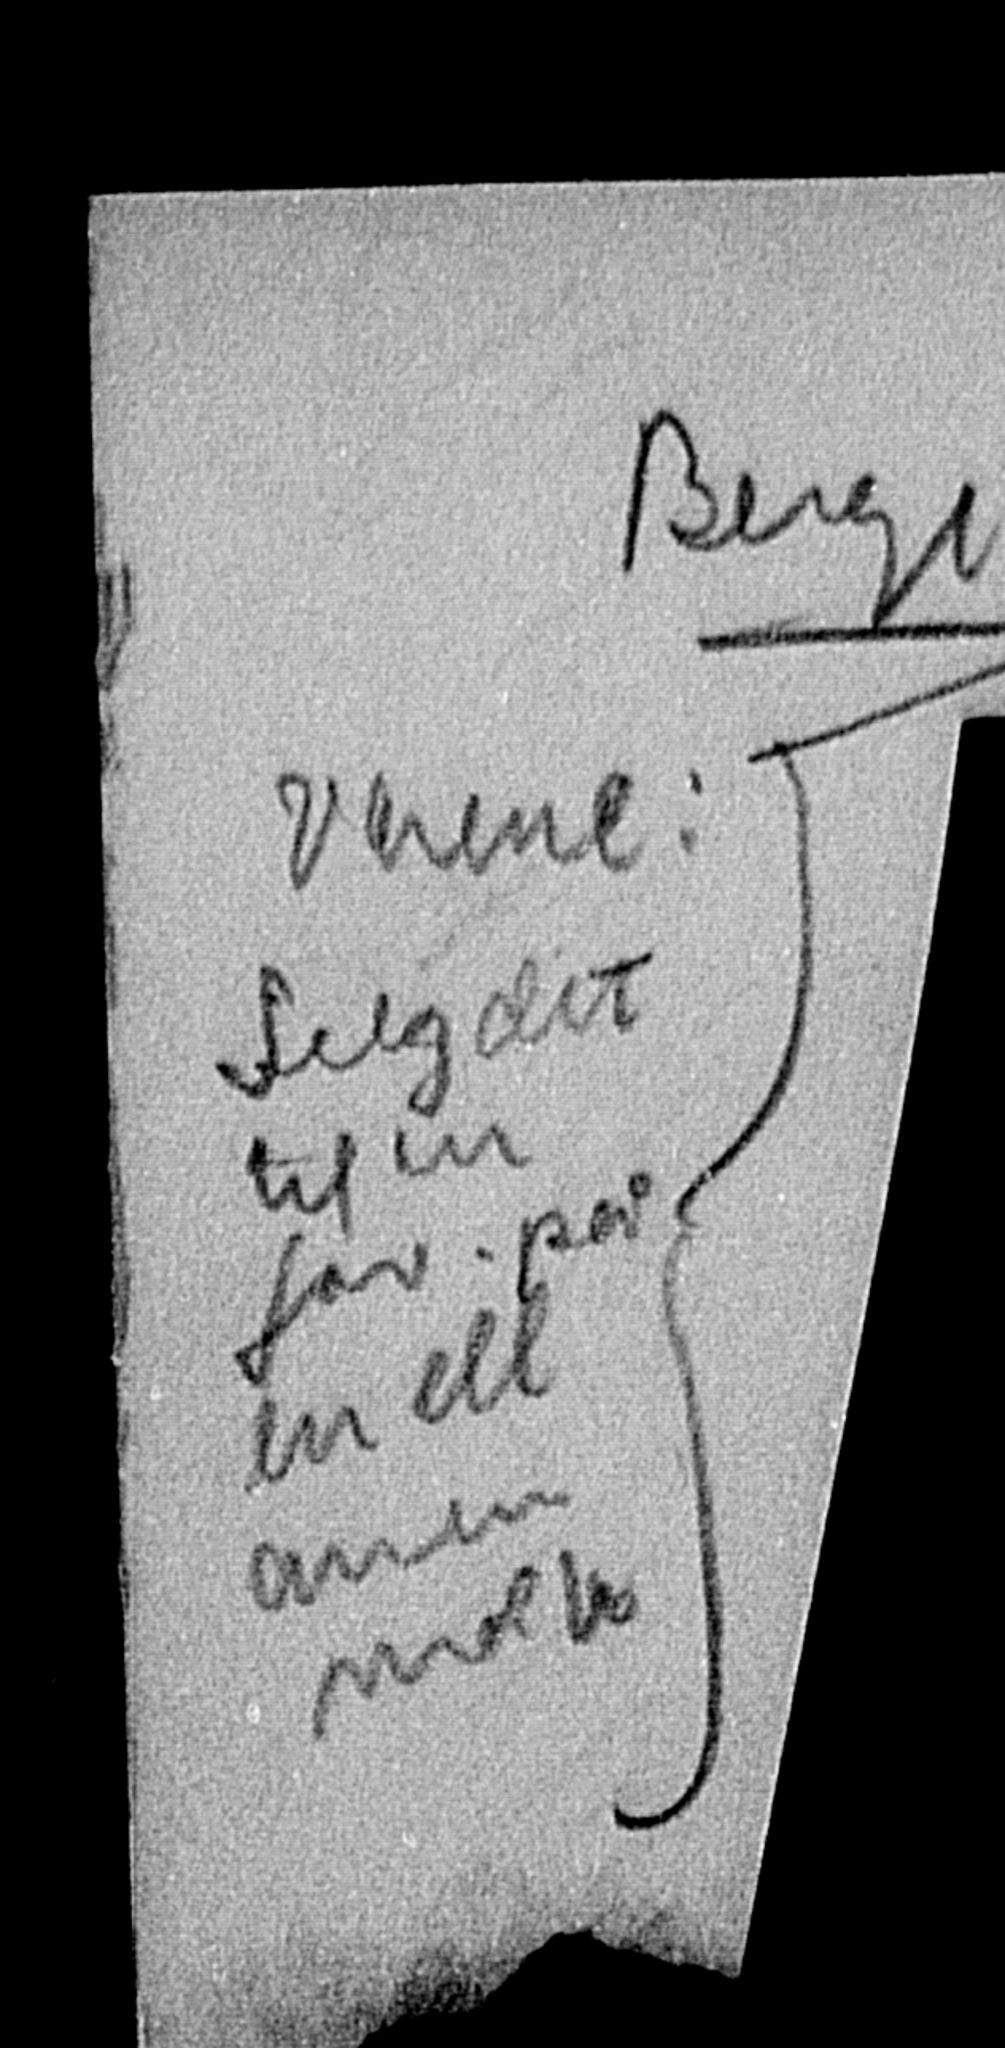 Berg
Vnene:
Selg det
til en
for. på
en ell
annen
måte